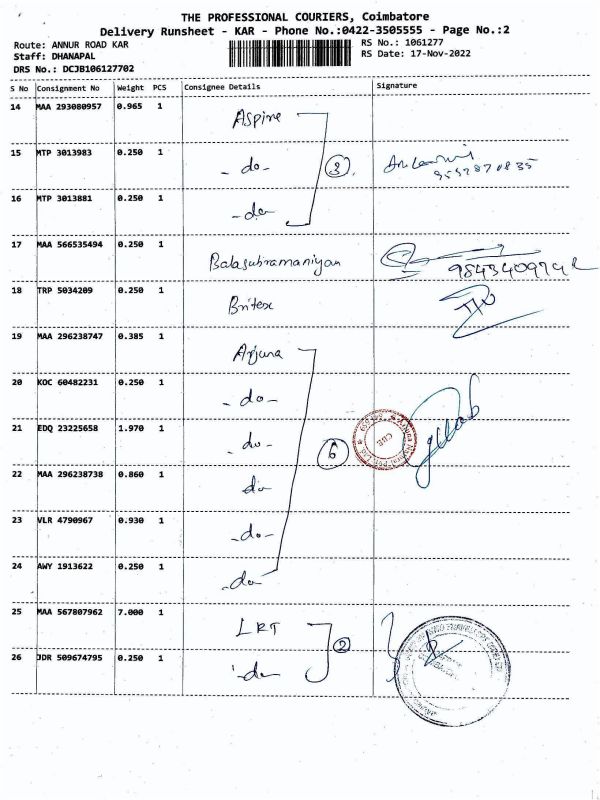 THE PROFESSIONAL COURIERS, Coimbatore
Delivery Runsheet - KAR - Phone No.:0422-3505555 - Page No.:2
Route: ANNUR ROAD KAR
RS No.: 1061277
Staff: DHANAPAL
RS Date: 17-Nov-2022
DRS No.: DCJB106127702
S No Consignment No Weight PCS Consignee Details Signature
14 MAA 293080957 0.965 1 Aspire
15 MTP 3013983 0.250 1 -do- 3
16 MTP 3013881 0.250 1 -do-
17 MAA 566535494 0.250 1 Balasubramaniyan
18 TRP 5034209 0.250 1 Britex
19 MAA 296238747 0.385 1 Arjuna
20 KOC 60482231 0.250 1 -do-
21 EDQ 23225658 1.970 1 -do- 6
22 MAA 296238738 0.860 1 do
23 VLR 4790967 0.930 1 -do-
24 AWY 1913622 0.250 1 -do-
25 MAA 567807962 7.000 1 LRT 2
26 JDR 509674795 0.250 1 -do-